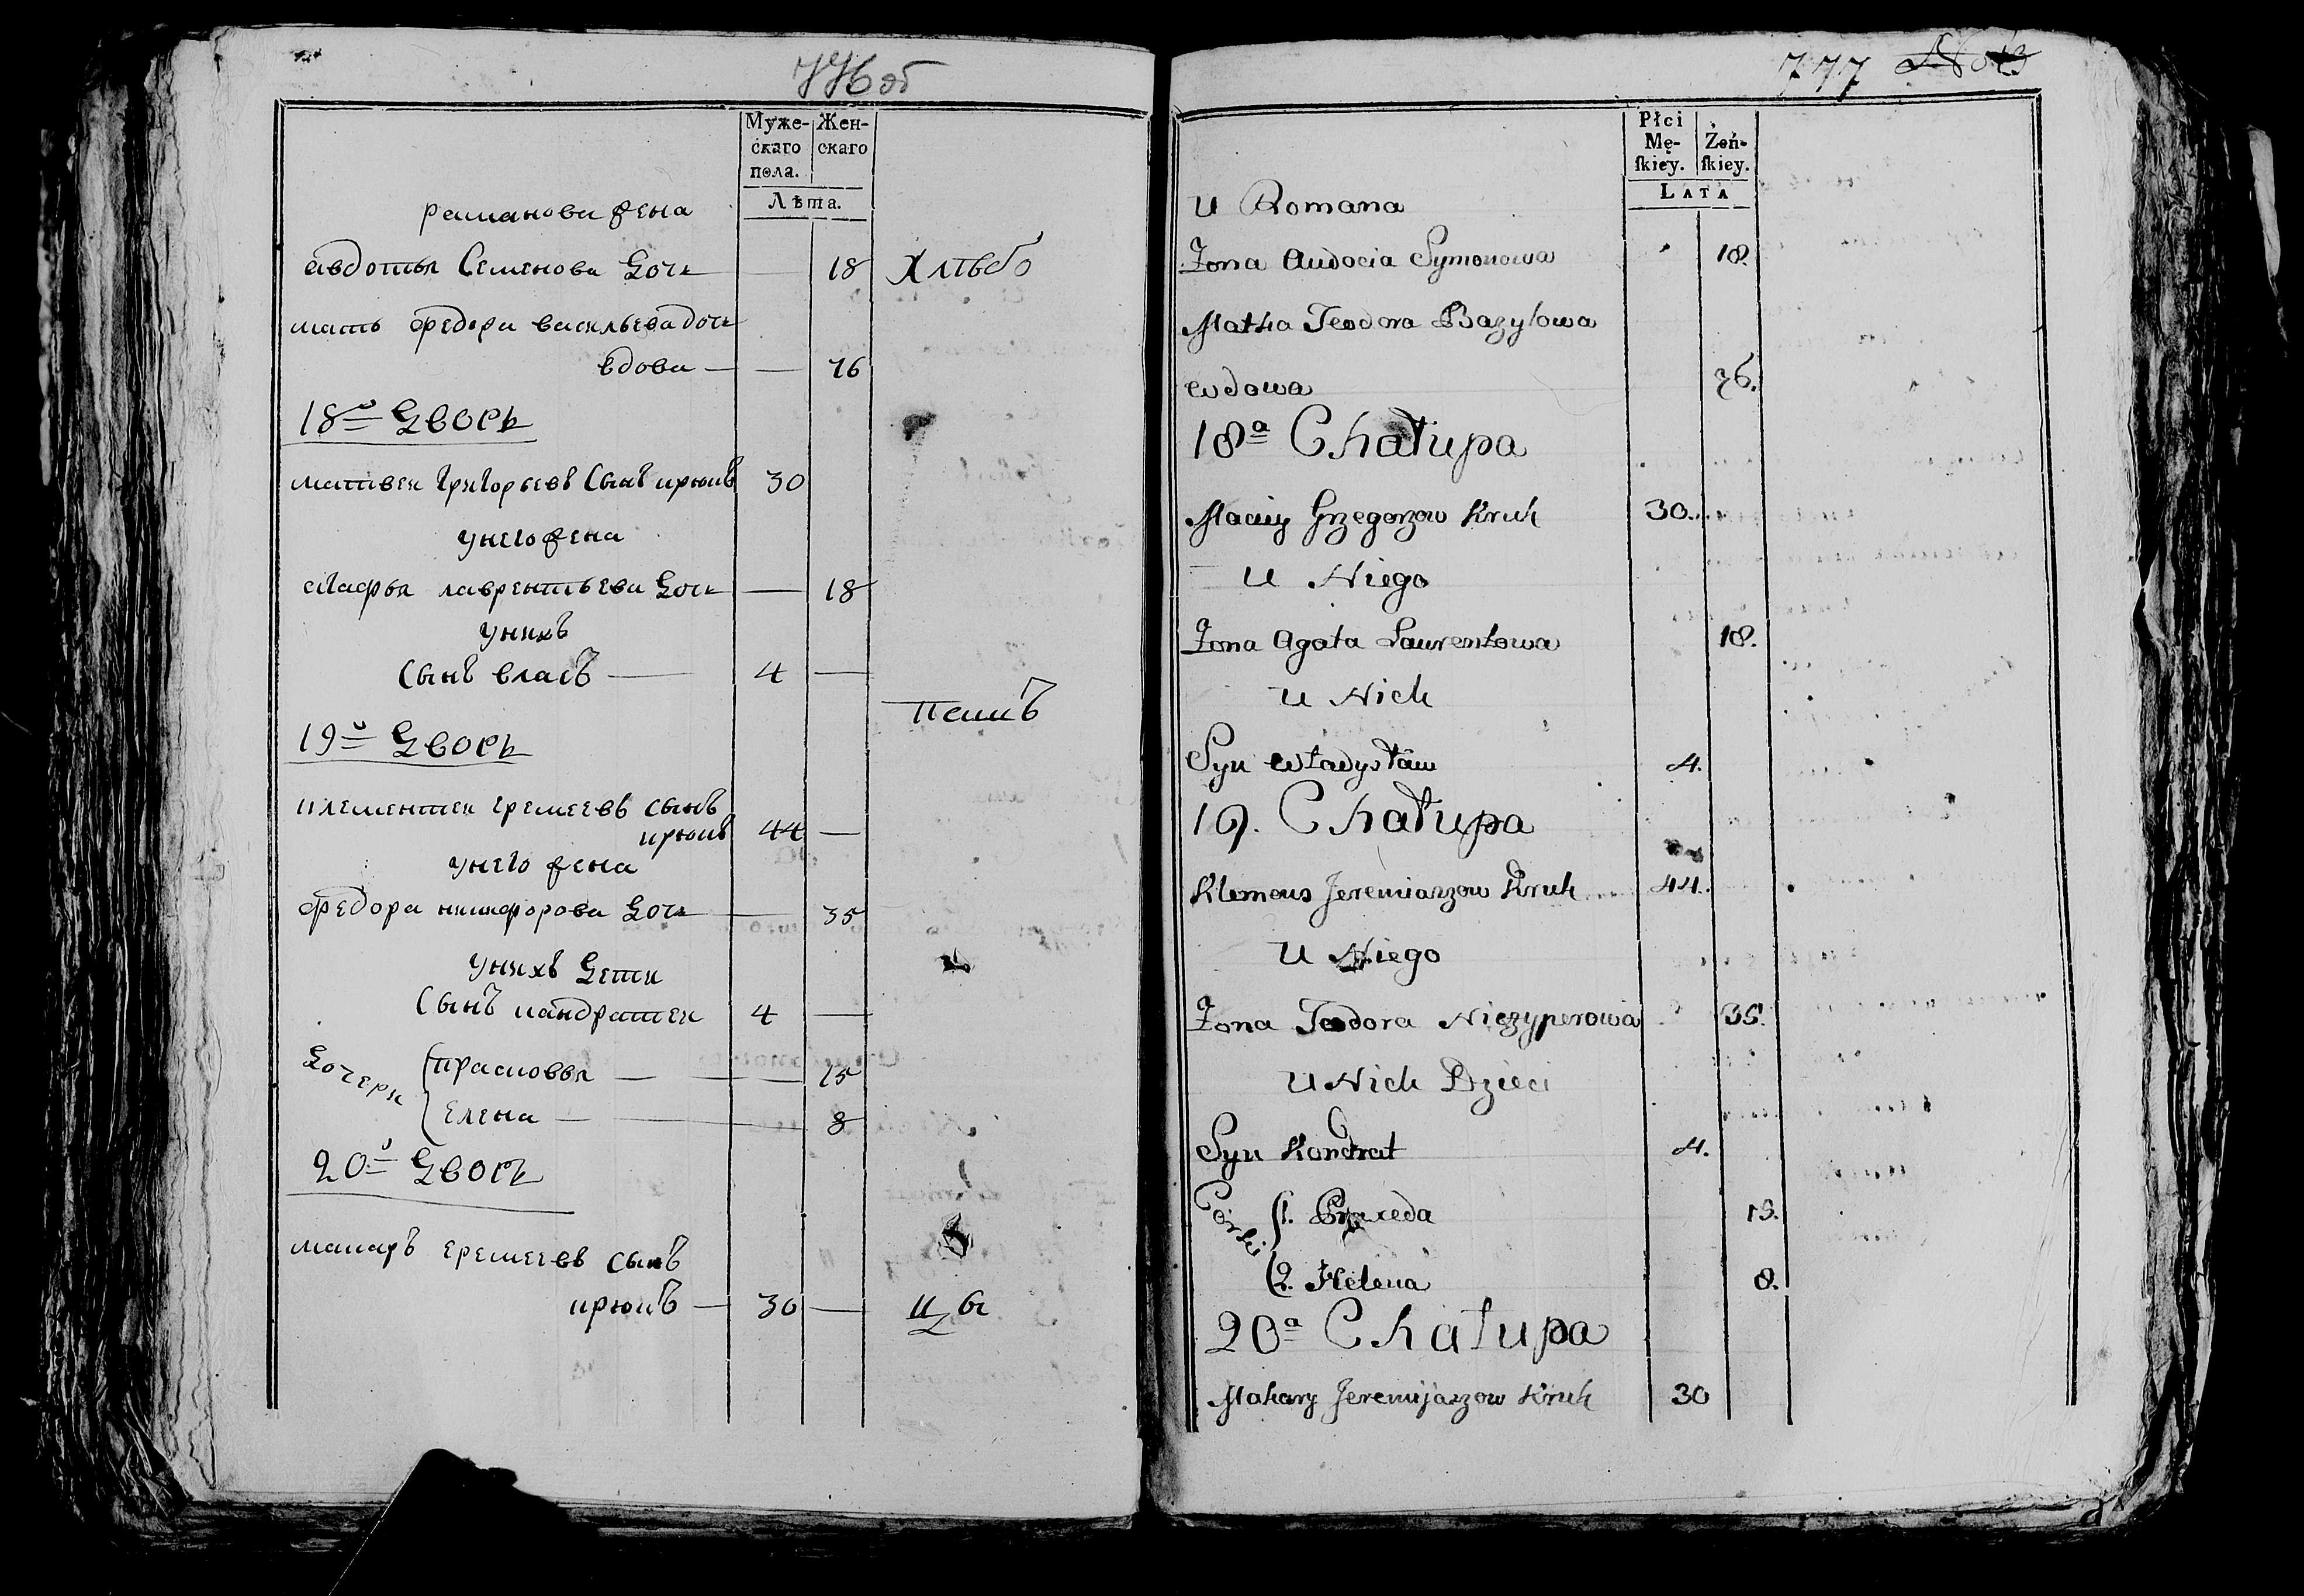 776 об
Муже-
скаго
пола.
Жен-
скаго
Лѣта.
романова жена
авдотья Семенова дочь 18
мать федора васильева дочь
вдова — — 76
18й дворъ
матвеи григорьевъ сынъ крюкъ 30
у него жена
агафья лаврентьева дочь — 18
у нихъ
сынъ власъ — 4 —
19й дворъ
клементеи еремеевъ сынъ
крюкъ 44 —
у него жена
федора никифорова дочь — 35
у нихъ дети
сынъ кандратеи 4 —
дочери прасковья — — 15
елена — — 8
20й дворъ
макаръ еремеевъ сынъ
крюкъ — 30 —
777
Płci
Mę-
ſkiey.
Żeń-
ſkiey.
LATA
U Romana
Zona Audocia Symonowa 18.
Matka Teodora Bazylowa
wdowa 76.
18a Chałupa
Maciey Grzegorzow Kruk 30.
U Niego
Zona Agata Laurentowa 18.
U Nich
Syn Władysław 4.
19. Chałupa
Klemens Jeremiaszow Kruk 44.
U Niego
Zona Teodora Niczyperowa 35.
U Nich Dzieci
Syn Kondrat 4.
Córki 1. Praxeda 15.
2. Helena 8.
20a Chałupa
Makary Jeremijaszow Kruk 30